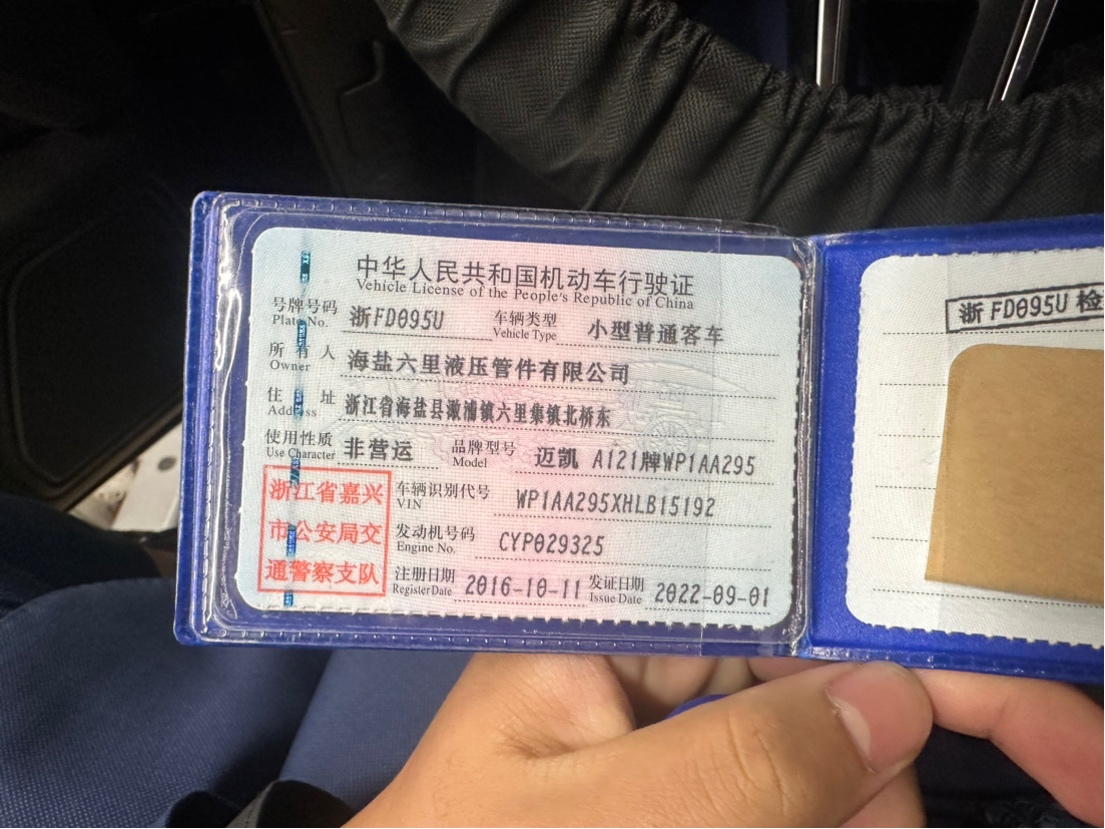 中华人民共和国机动车行驶证
Vehicle License of the People's Republic of China
号牌号码 浙FD095U 车辆类型 小型普通客车
Plate No. Vehicle Type
所有人 海盐六里液压管件有限公司
Owner
住址 浙江省海盐县澉浦镇六里集镇北桥东
Address
使用性质 非营运 品牌型号 迈凯 A121牌WP1AA295
Use Character Model
浙江省嘉兴
市公安局交
通警察支队
车辆识别代号 WP1AA295XHLB15192
VIN
发动机号码 CYP029325
Engine No.
注册日期 2016-10-11 发证日期 2022-09-01
Register Date Issue Date
浙FD095U 检